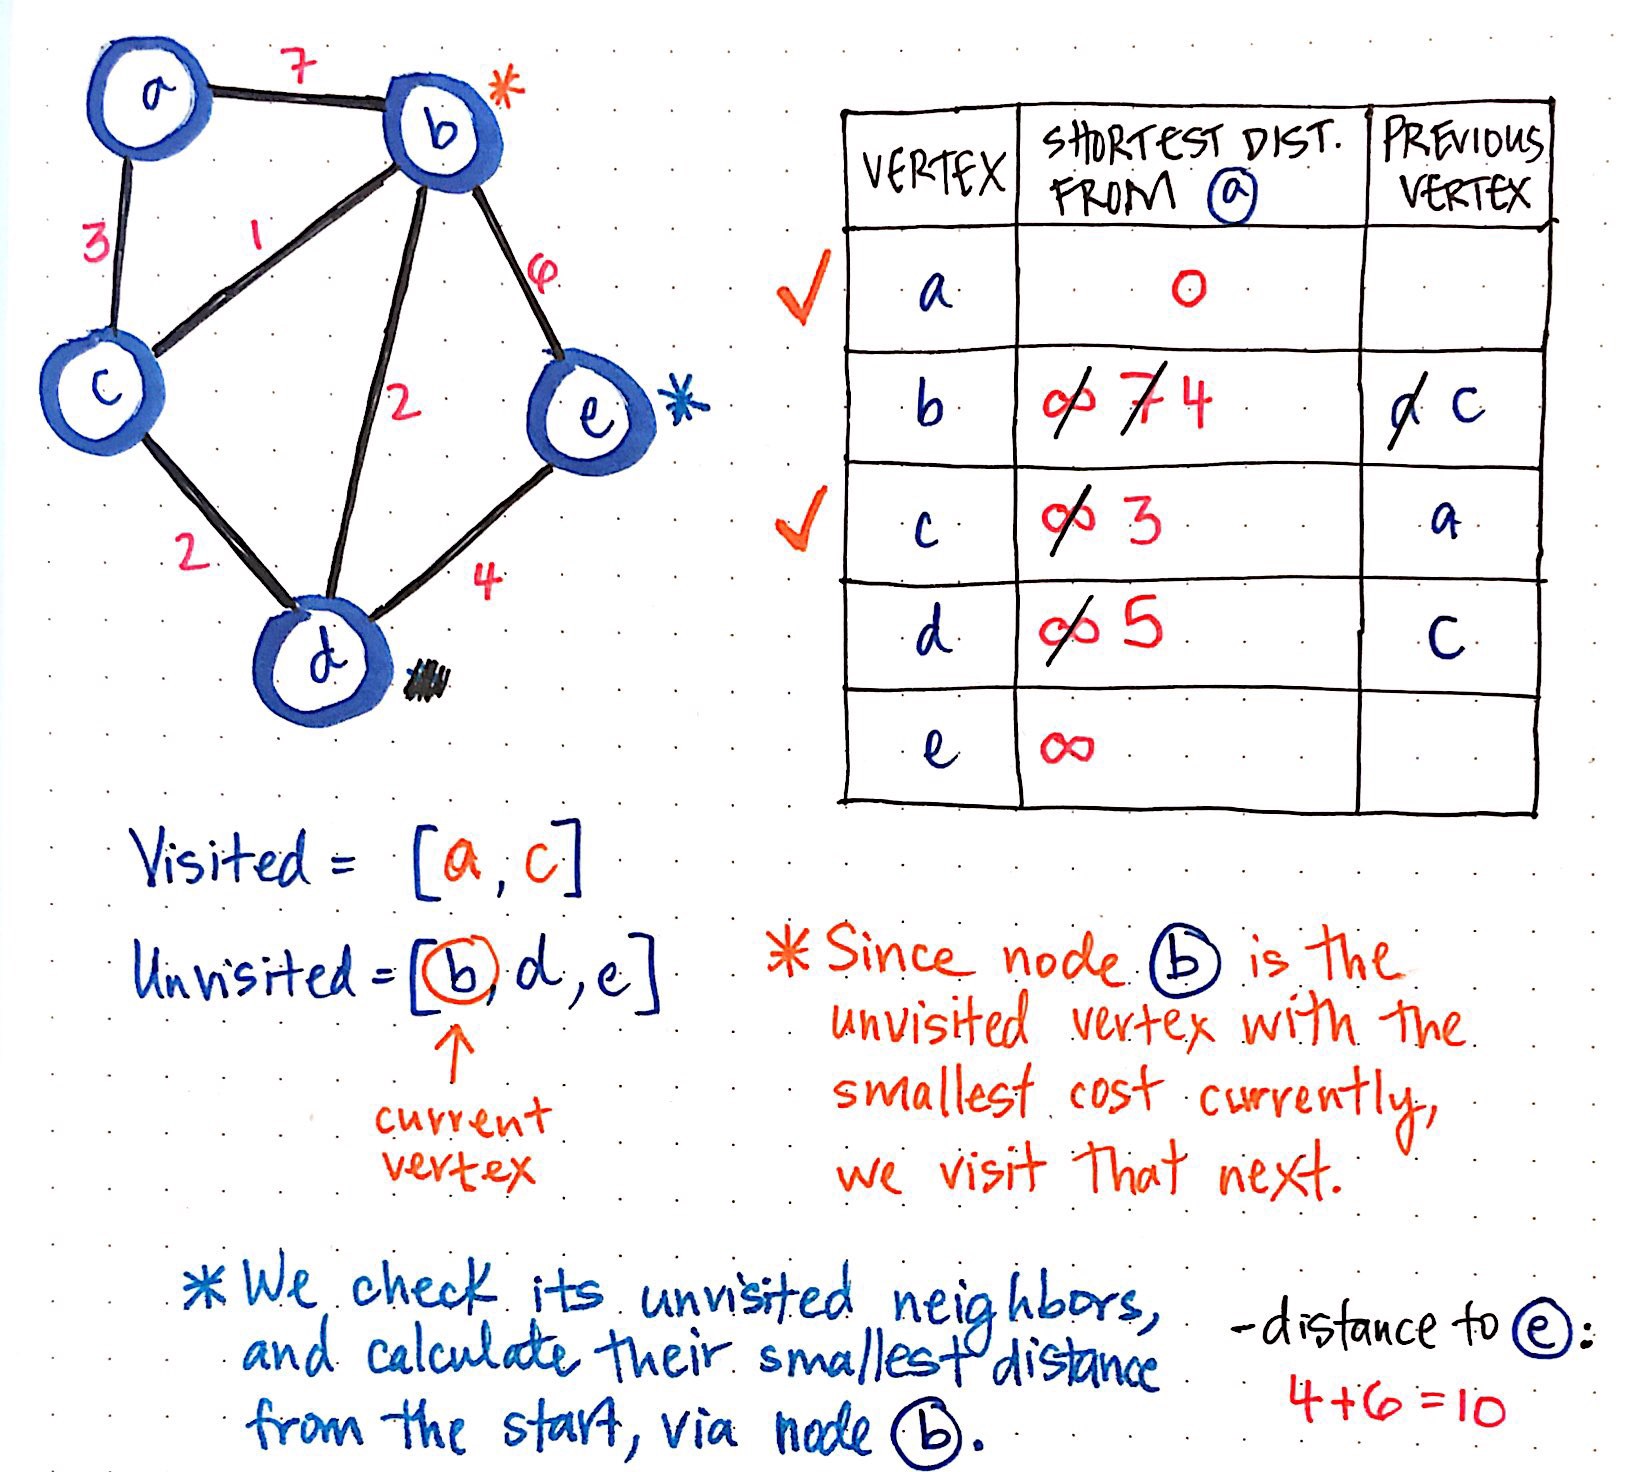 a
7
b *
3
1
6
c
2
e *
2
4
d
VERTEX
SHORTEST DIST.
FROM a
PREVIOUS
VERTEX
✓ a 0
b ∞ 7 4 a c
✓ c ∞ 3 a
d ∞ 5 c
e ∞
Visited = [a, c]
Unvisited = [b, d, e]
↑
current
vertex
* Since node b is the
unvisited vertex with the
smallest cost currently,
we visit that next.
* We check its unvisited neighbors,
and calculate their smallest distance
from the start, via node b.
- distance to e:
4+6=10